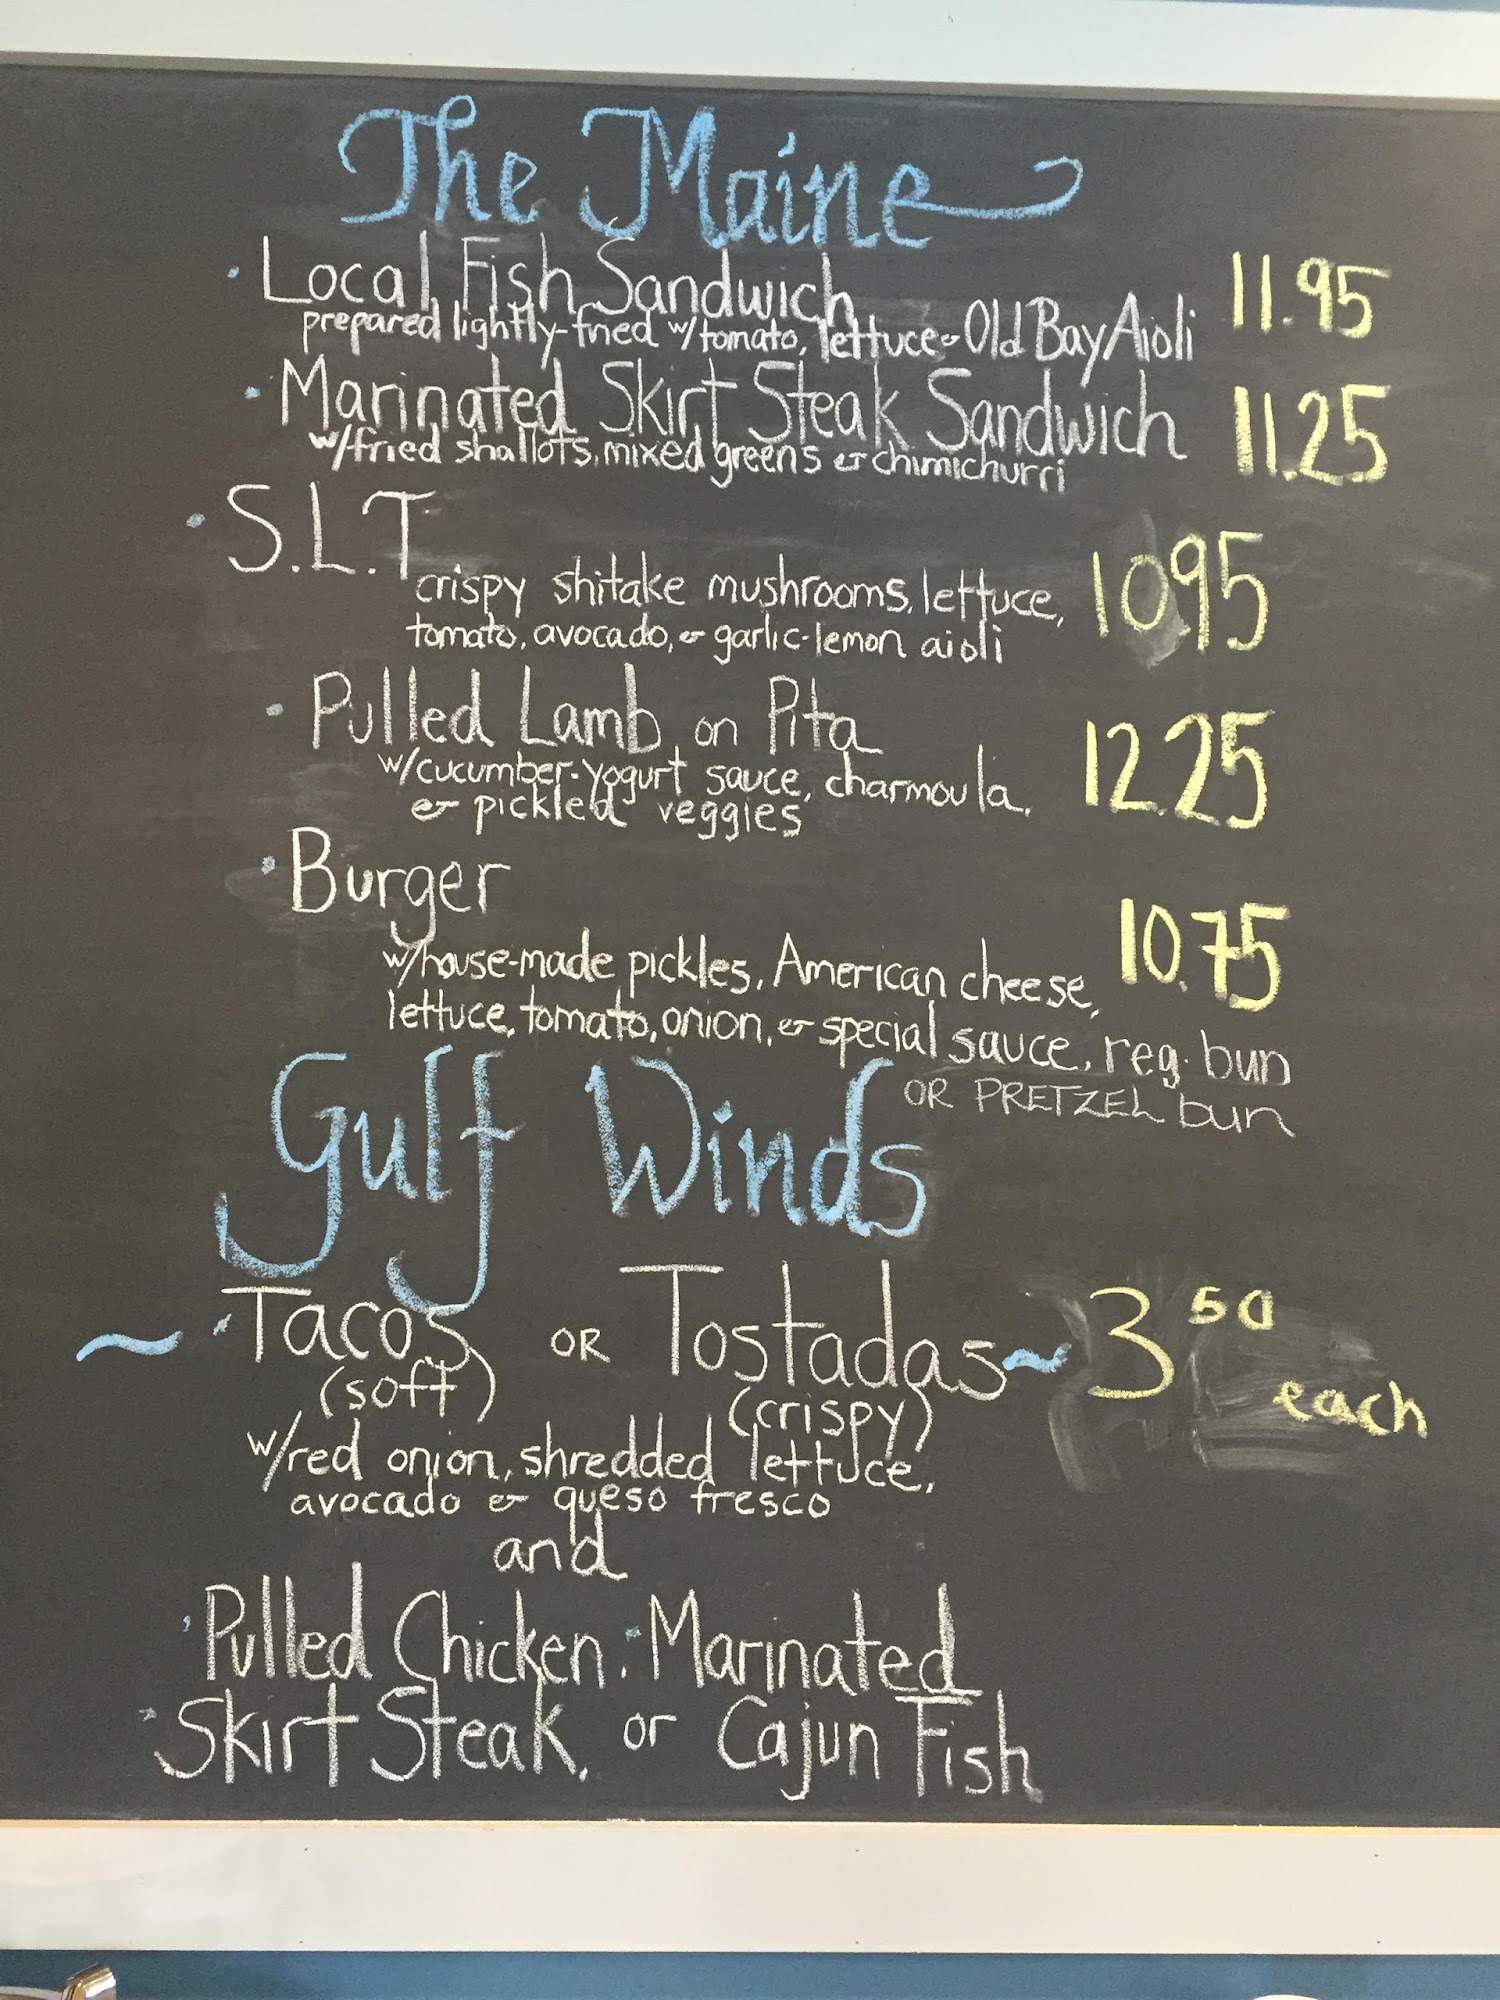 The Maine
· Local Fish Sandwich 11.95
prepared lightly-fried w/tomato, lettuce & Old Bay Aioli
· Marinated Skirt Steak Sandwich 11.25
w/fried shallots, mixed greens & chimichurri
· S.L.T
crispy shitake mushrooms, lettuce, 10.95
tomato, avocado, & garlic-lemon aioli
· Pulled Lamb on Pita 12.25
w/cucumber-yogurt sauce, charmoula,
& pickled veggies
· Burger 10.75
w/house-made pickles, American cheese,
lettuce, tomato, onion, & special sauce, reg. bun
OR PRETZEL bun
Gulf Winds
~ · Tacos OR Tostadas ~ 3 50 each
(soft) (crispy)
w/red onion, shredded lettuce,
avocado & queso fresco
and
· Pulled Chicken, · Marinated
· Skirt Steak, or Cajun Fish